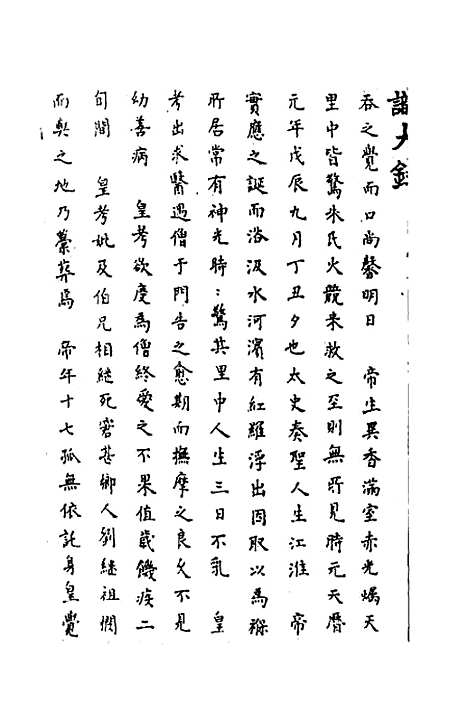 吞之覺而口尚馨明日　帝生異香滿室赤光燭天
里中皆驚朱氏火競来救之至則無所見時元天曆
元年戊辰九月丁丑夕也太史奏聖人生江淮　帝
實應之誕而浴汲水河濱有紅羅浮出因取以為襁
所居常有神光時〻驚其里中人生三日不乳　皇
考出求醫遇僧于門告之愈期而撫摩之良久不見
幼善病　皇考欲度為僧終愛之不果值歲饑疫二
旬間　皇考妣及伯兄相継死窘甚鄉人劉継祖憫
而與之地乃藁葬焉　帝年十七孤無依託身皇覺